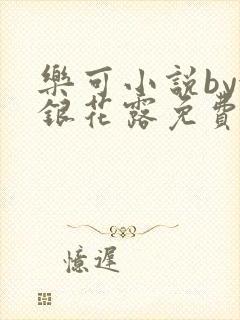 樂可小説by
銀花露免費
憶遲